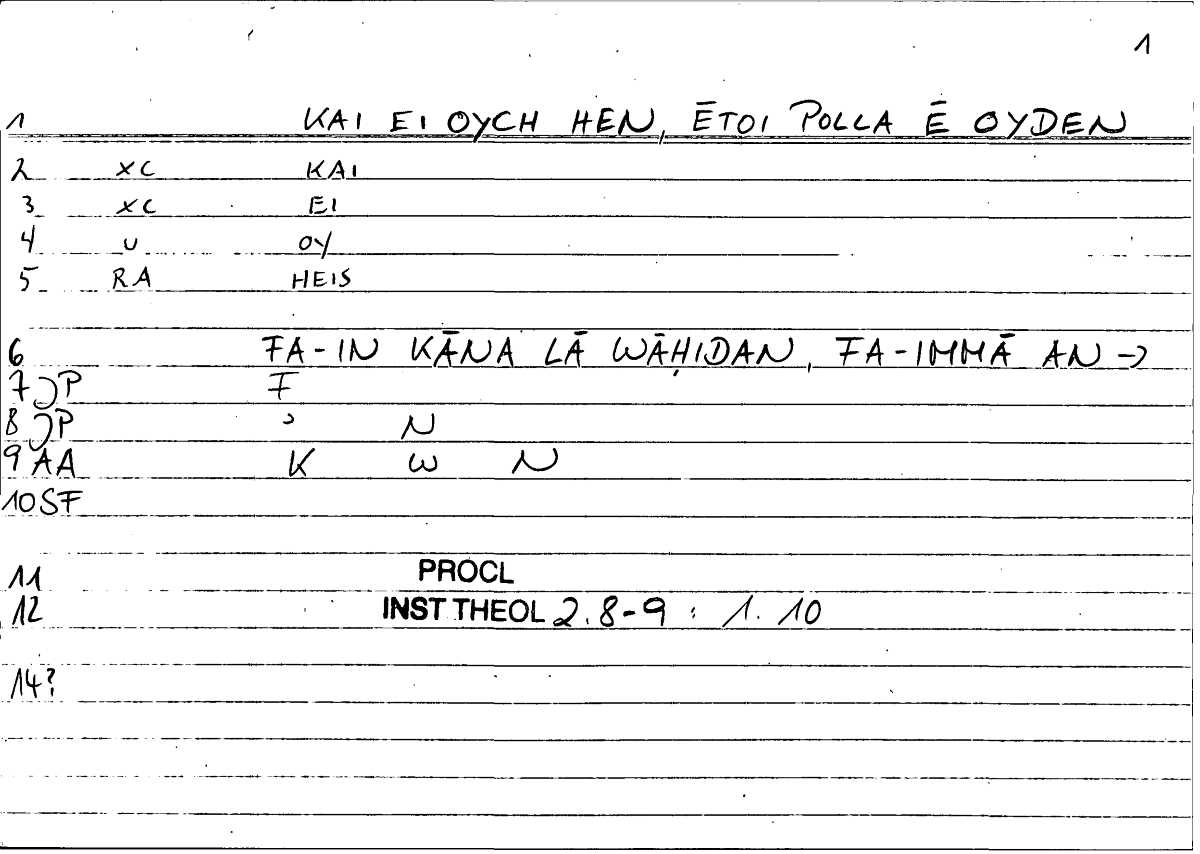 1
1 KAI EI OYCH HEN, ĒTOI POLLA Ē OYDEN
2 XC KAI
3 XC EI
4 U OY
5 RA HEIS
6 FA-IN KĀNA LĀ WĀḤIDAN, FA-IMMĀ AN →
7 JP F
8 JP ʾ N
9 AA K W N
10 SF
11 PROCL
12 INST THEOL 2.8-9 : 1.10
14?